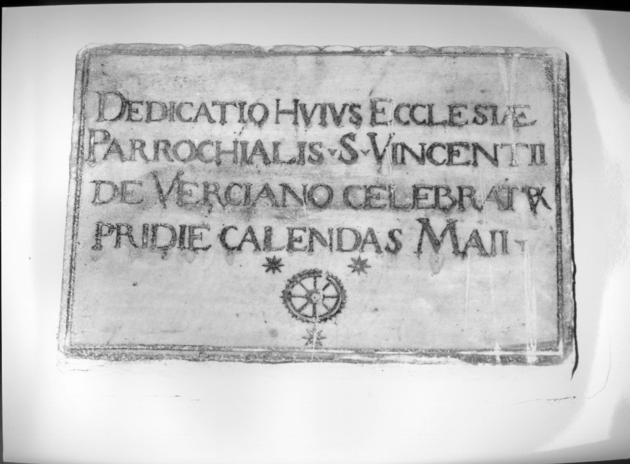 DEDICATIO HVIVS ECCLESIÆ
PARROCHIALIS S VINCENTII
DE VERCIANO CELEBRATVR
PRIDIE CALENDAS MAII